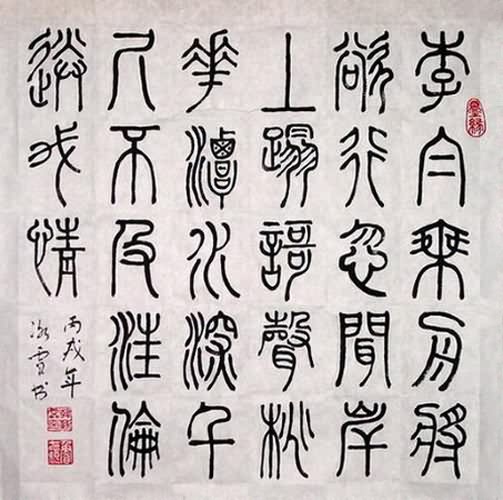 墨緣
李白乘舟將
欲行忽聞岸
上踏謌聲桃
花潭水深千
尺不及汪倫
送我情
丙戌年